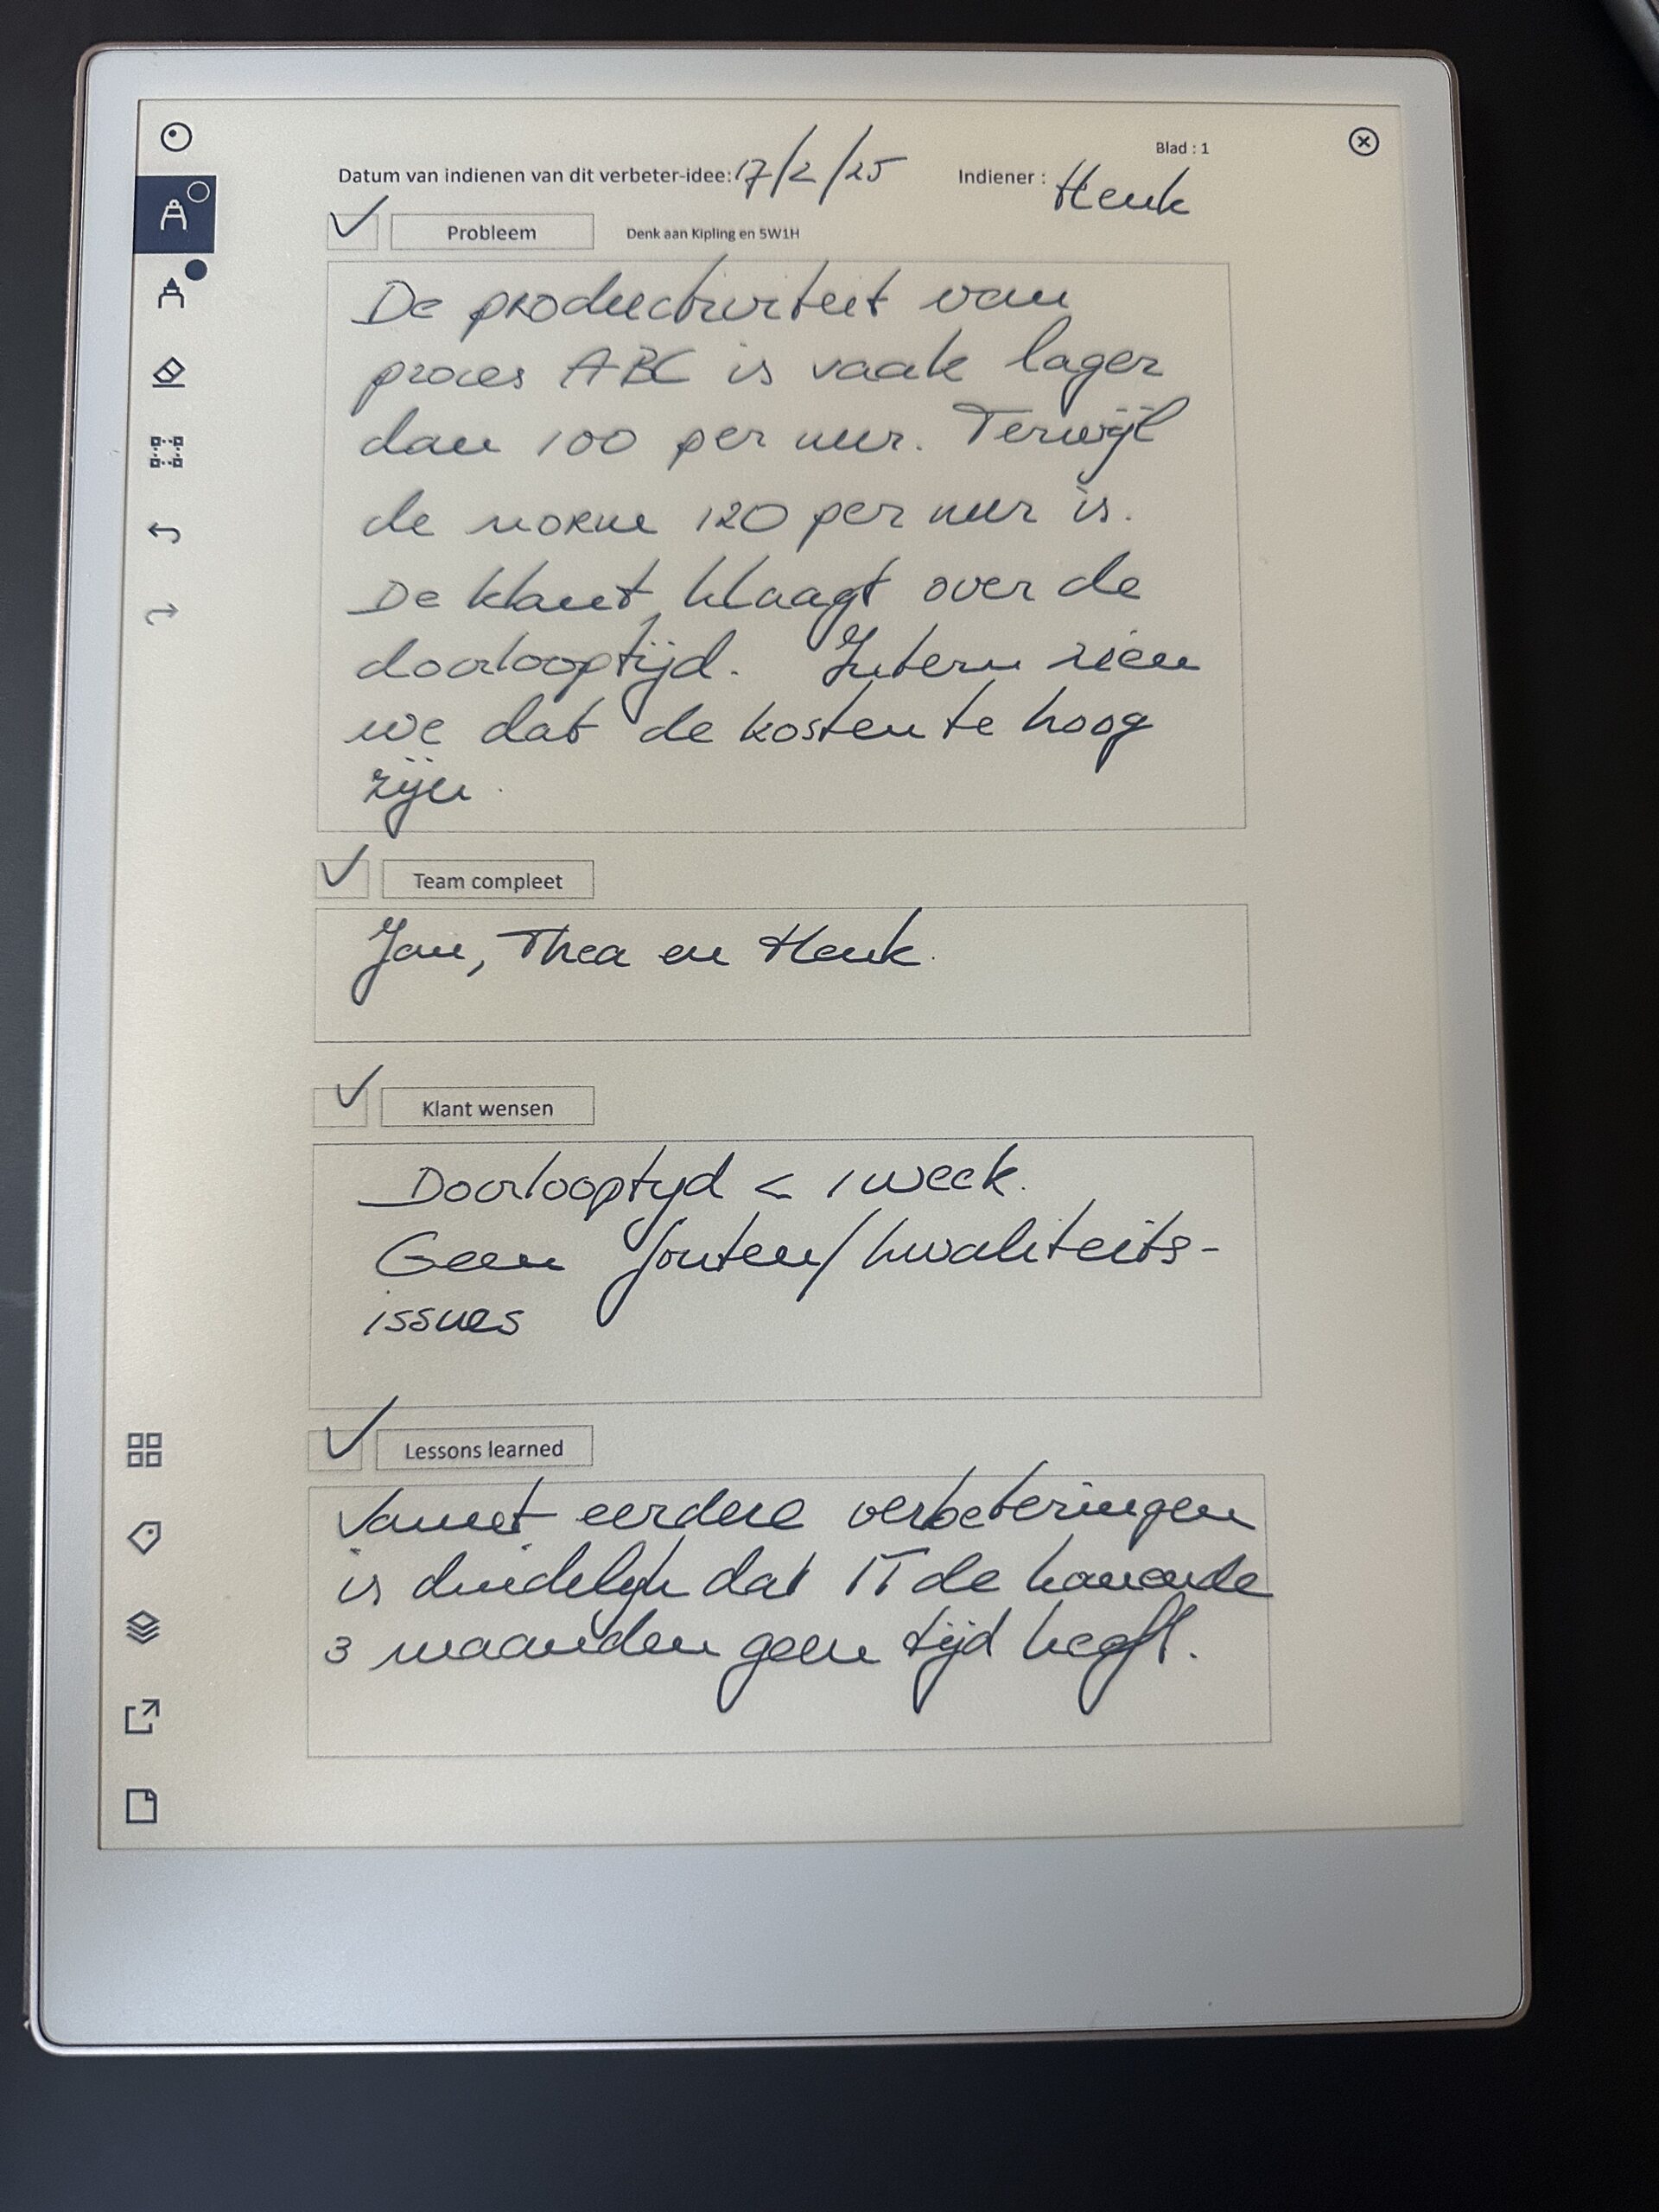 Blad : 1
Datum van indienen van dit verbeter-idee: 17/2/25 Indiener : Henk
Probleem Denk aan Kipling en 5W1H
De productiviteit van
proces ABC is vaak lager
dan 100 per uur. Terwijl
de norm 120 per uur is.
De klant klaagt over de
doorlooptijd. Intern zien
we dat de kosten te hoog
zijn.
Team compleet
Jan, Thea en Henk.
Klant wensen
Doorlooptijd < 1 week.
Geen fouten/kwaliteits-
issues
Lessons learned
Vanuit eerdere verbeteringen
is duidelijk dat IT de komende
3 maanden geen tijd heeft.